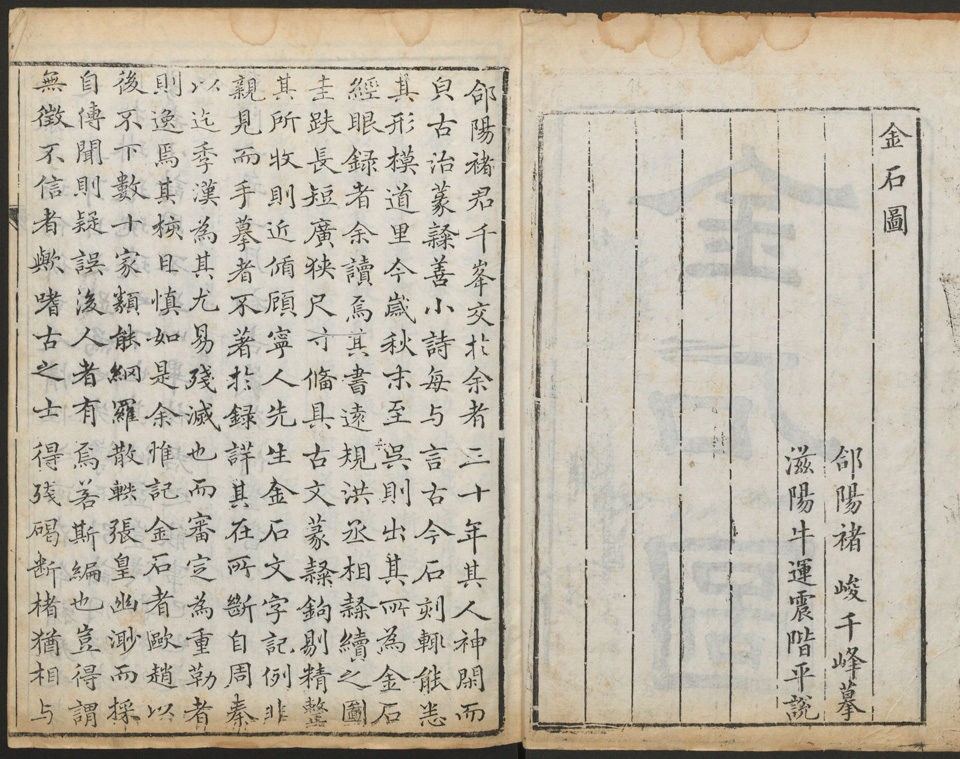 金石圖
郃陽褚 峻千峰摹
滋陽牛運震階平說
郃陽褚君千峯交於余者三十年其人神閑而
貞古治篆隸善小詩每与言古今石刻輒能悉
其形模道里今歲秋末至吳則出其所為金石
經眼録者余讀焉其書遠規洪丞相隸續之圖
圭趺長短廣狹尺寸偹具古文篆隸鉤剔精整
其所收則近傾顧寧人先生金石文字記例非
親見而手摹者不著於録詳其在所斷自周秦
以迄季漢為其尤易殘滅也而審定為重勒者
則逸焉其核且慎如是余惟記金石者歐趙以
後不下數十家類能網羅散軼張皇幽渺而採
自傳聞則疑誤後人者有焉若斯編也豈得謂
無徵不信者歟嗜古之士得殘碣斷楮猶相与